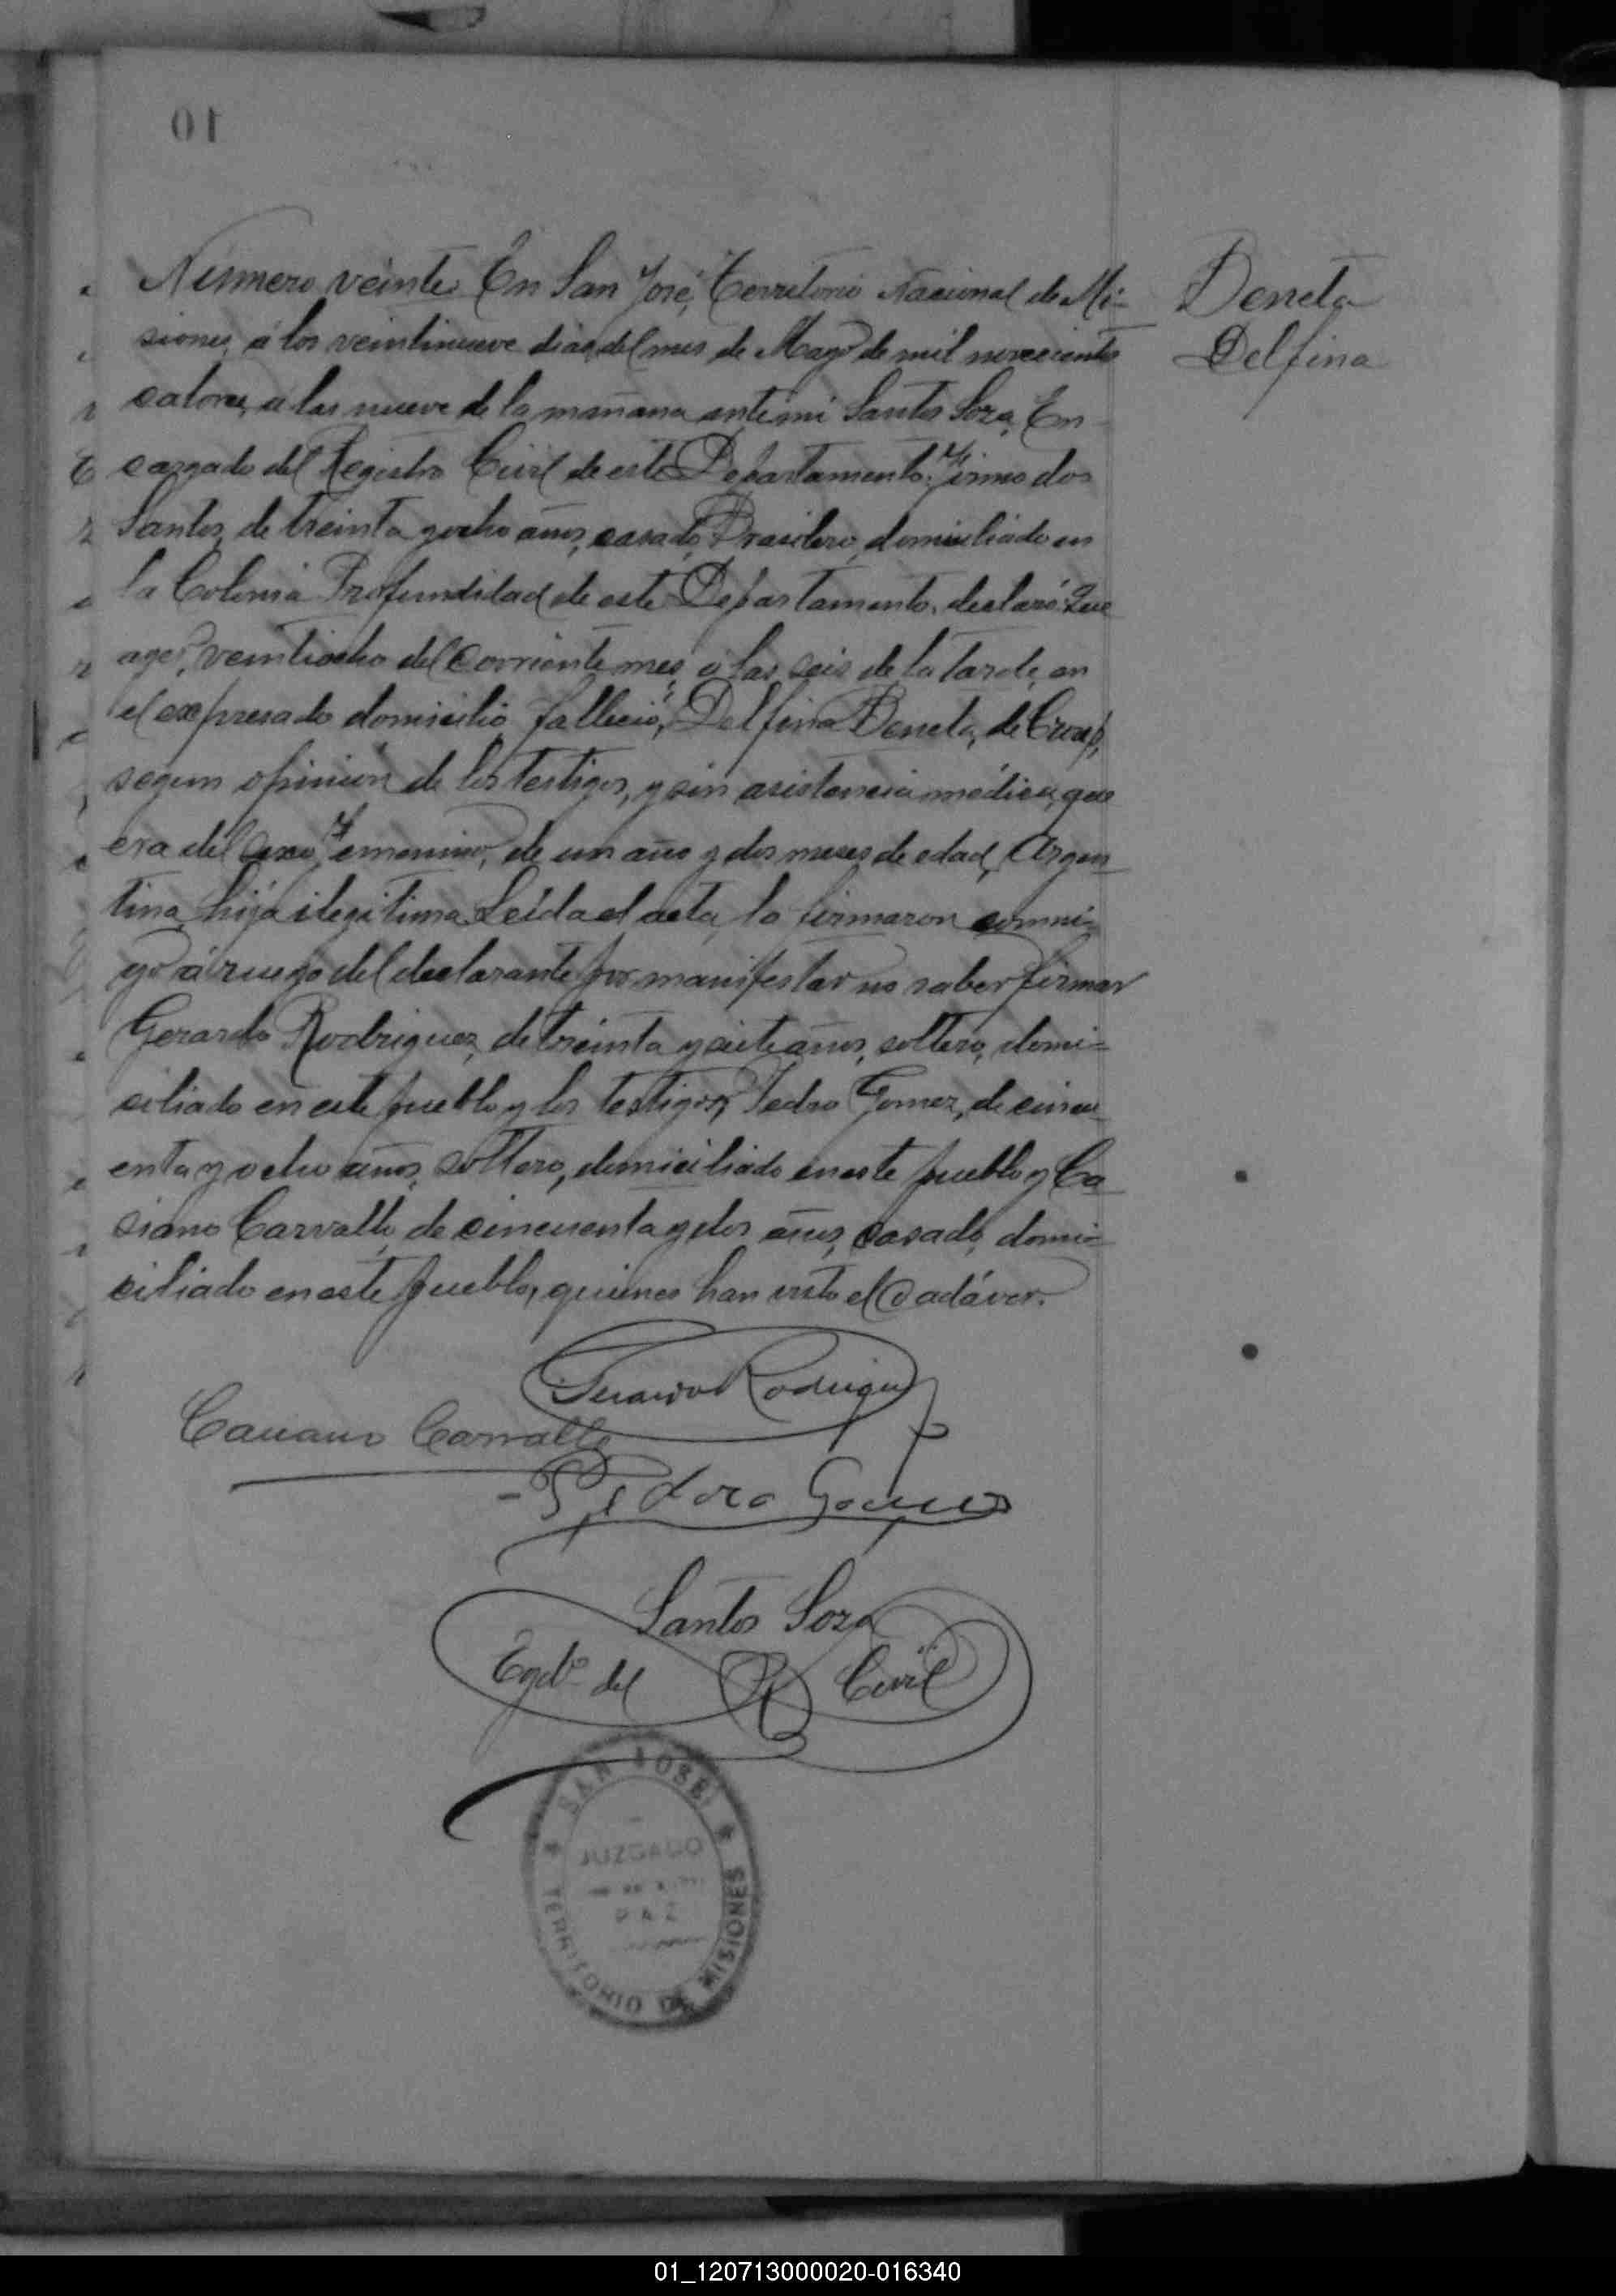 Número veinte. En San José, Territorio Nacional de Mi-
siones, á los veintinueve dias del mes de Mayo de mil novecientos
catorce, á las nueve de la mañana ante mi Santos Soza, En-
cargado del Registro Civil de este Departamento: Firmo dos
Santos, de treinta y ocho años, casado, Brasilero, domiciliado en
la Colonia Profundidad de este Departamento, declaró: Que
ayer, veintiocho del corriente mes, a las seis de la tarde, en
el expresado domicilio falleció, Delfina Beneta, de Croup,
segun opinión de los testigos, y sin asistencia médica, que
era del sexo femenino, de un año y dos meses de edad, Argen-
tina, hija ilegitima. Leída el acta, la firmaron conmi-
go á ruego del declarante por manifestar no saber firmar
Gerardo Rodriguez, de treinta y siete años, soltero, domi-
ciliado en este pueblo y los testigos, Pedro Gomez, de cincu-
enta y ocho años, soltero, domiciliado en este pueblo y Ca-
siano Carvallo, de cincuenta y dos años, casado, domi-
ciliado en este pueblo, quienes han visto el cadáver.
Beneta
Delfina
Gerardo Rodriguez
Casiano Carvallo
Pedro Gomez
Santos Soza
Egdo. del R. Civil
SAN JOSÉ
JUZGADO
DE
PAZ
TERRITORIO DE MISIONES
10
01_120713000020-016340